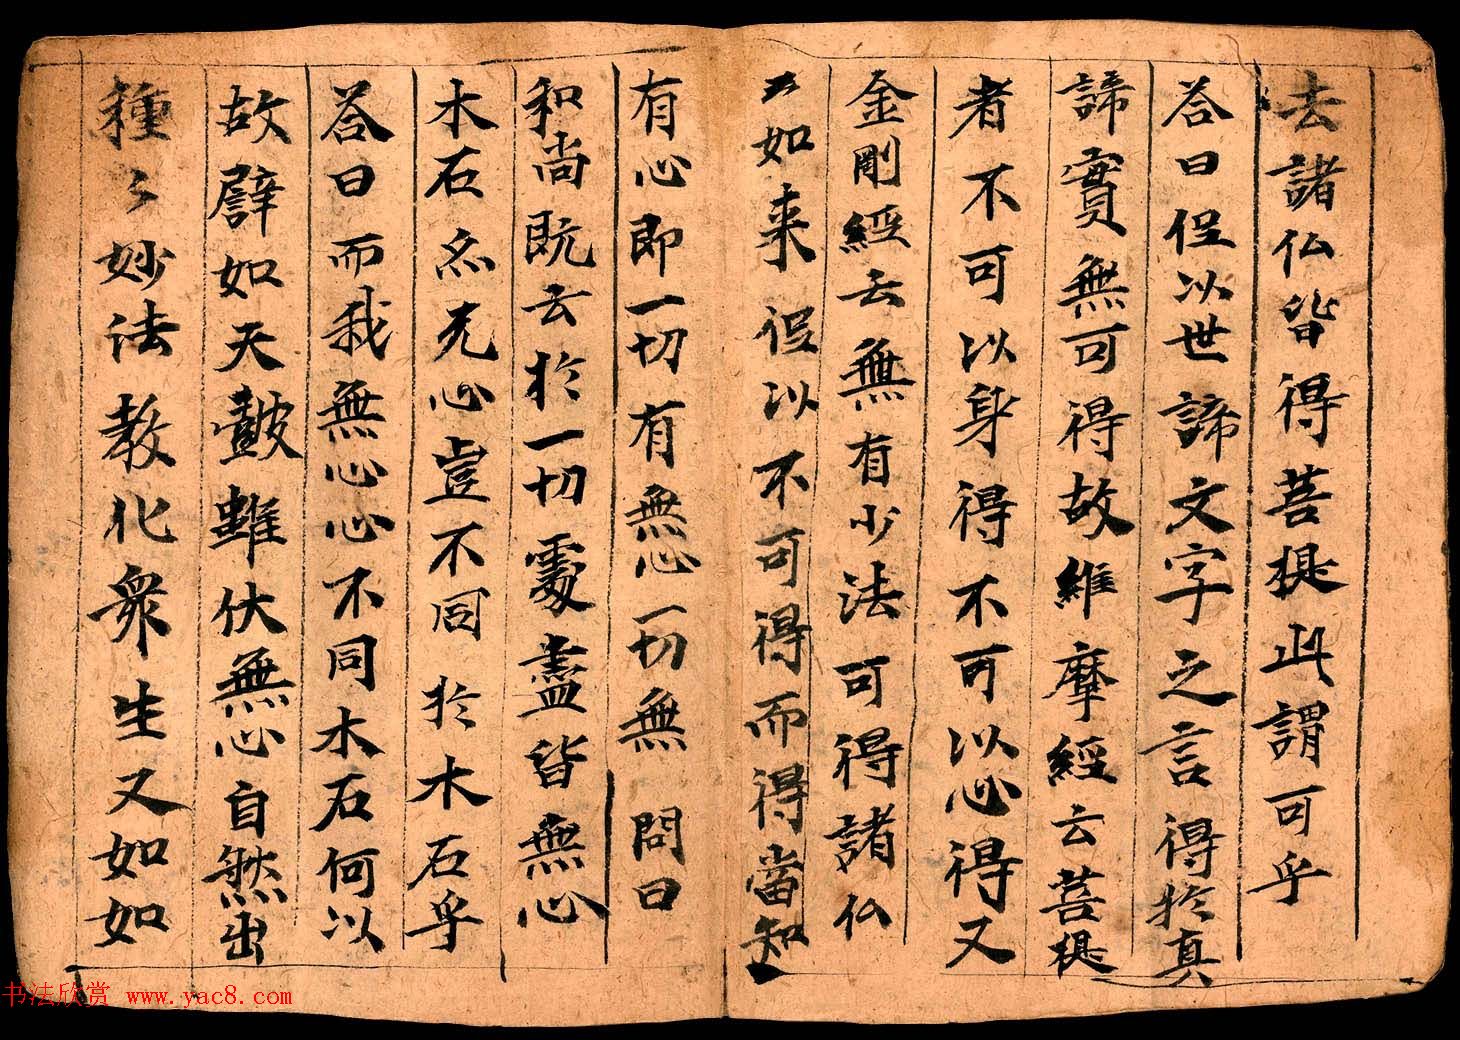 去諸仏皆得菩提此謂可乎
答曰但以世諦文字之言得於真
諦實無可得故維摩經云菩提
者不可以身得不可以心得又
金剛經云無有少法可得諸仏
如来但以不可得而得當知
有心即一切有無心一切無 問曰
和尚既云於一切處盡皆無心
木石亦无心豈不同於木石乎
答曰而我無心心不同木石何以
故譬如天皷雖伏無心自然出
種〻妙法教化衆生又如如
书法欣赏 www.yac8.com